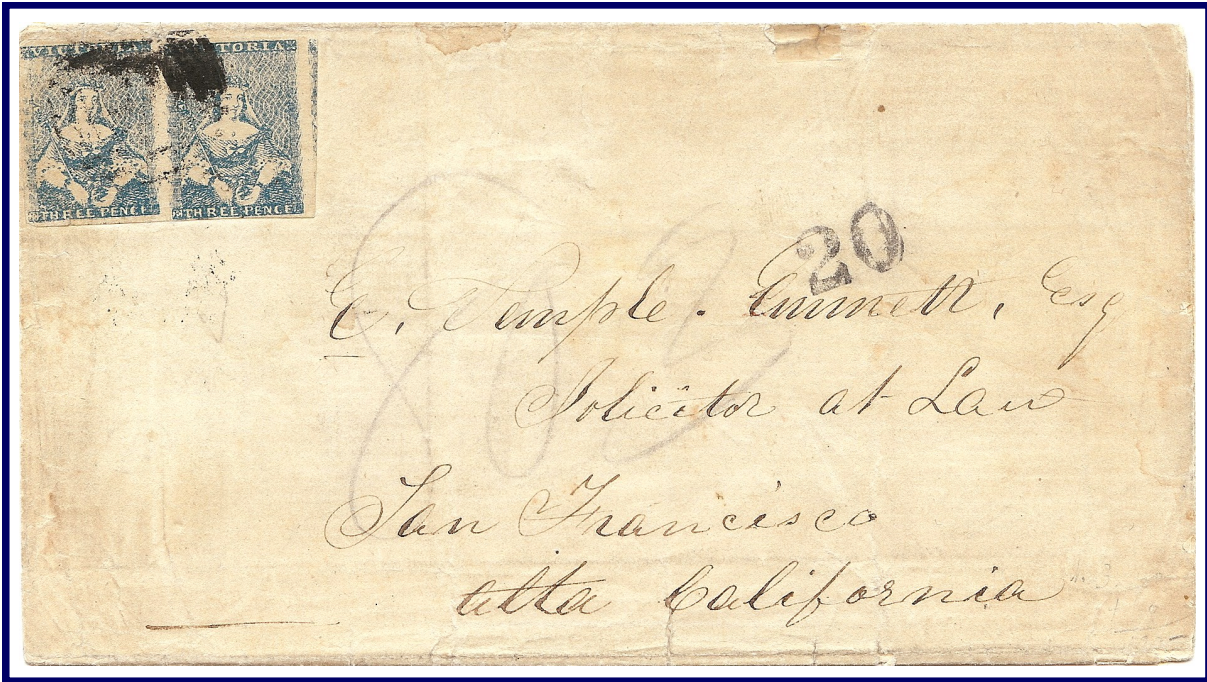 VICTORIA VICTORIA
THREE PENCE THREE PENCE
20
E. Temple. Emmett, Esq
Solicitor at Law
San Francisco
Alta California